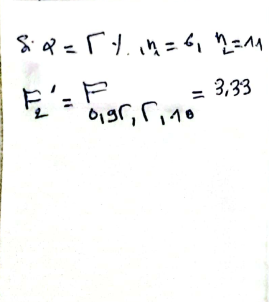 δ: α = 5 %. , n₁ = 6, n₂ = 11
F₂' = F₀,₉₅, ₅, ₁₀ = 3,33